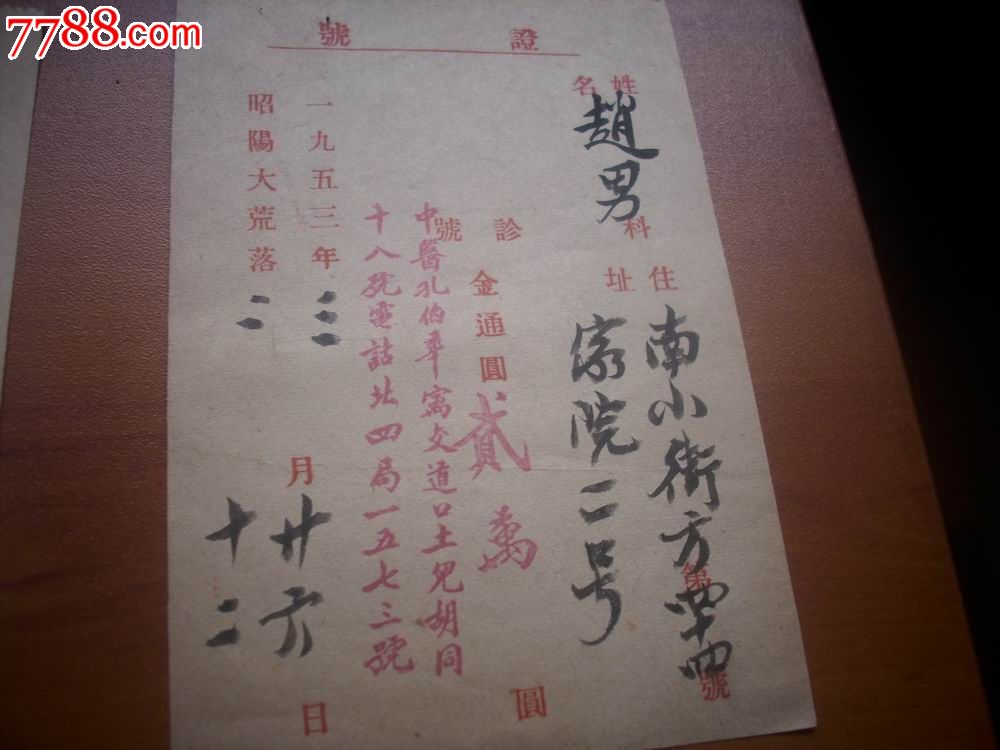 7788.com
證號
姓名
趙男
科
住址
南小街方
家院二号
第四十四號
診號
金通圓貳萬圓
中醫孔伯華寓交道口土兒胡同
十八號電話北四局一五七三號
一九五三年三月廿六日
昭陽大荒落二
十二